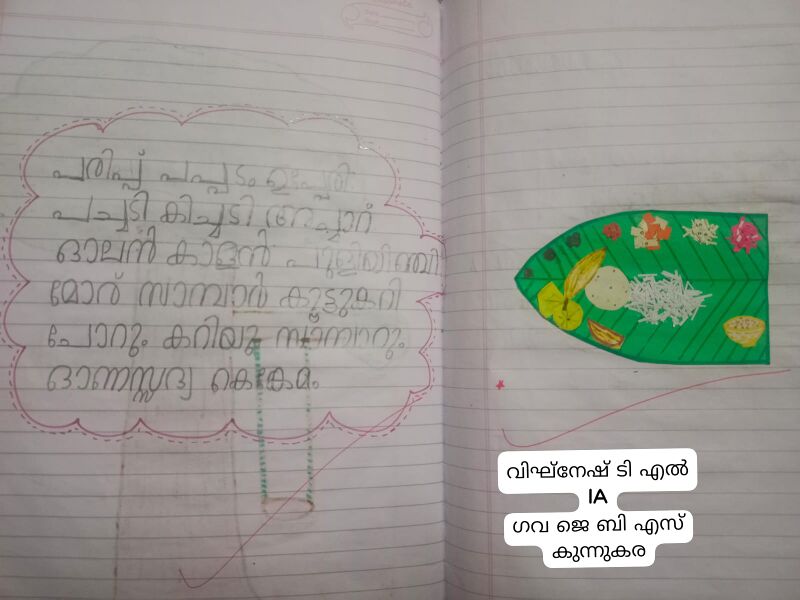 പരിപ്പ് പപ്പടം ഉപ്പേരി
പച്ചടി കിച്ചടി അച്ചാറ്
ഓലൻ കാളൻ പുളിയിഞ്ചി
മോര് സാമ്പാർ കൂട്ടുകറി
ചോറും കറിയും സാമ്പാറും
ഓണസ്സദ്യ കെങ്കേമം
വിഘ്നേഷ് ടി എൽ
IA
ഗവ ജെ ബി എസ്
കുന്നുകര